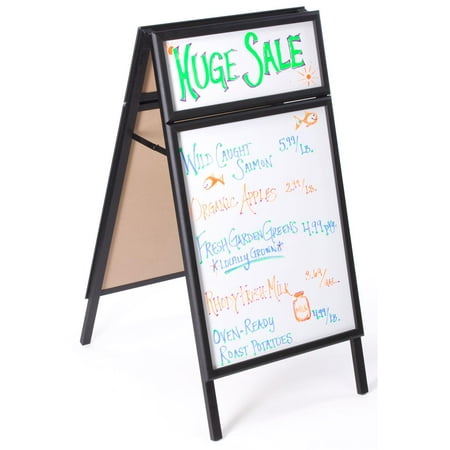 HUGE SALE
WILD CAUGHT 5.99/LB.
SALMON
ORGANIC APPLES 2.99/LB.
FRESH GARDEN GREENS 4.99 pkg.
*LOCALLY GROWN*
FRESH MILK 3.69/GAL.
MILK
OVEN-READY 4.99/LB.
ROAST POTATOES